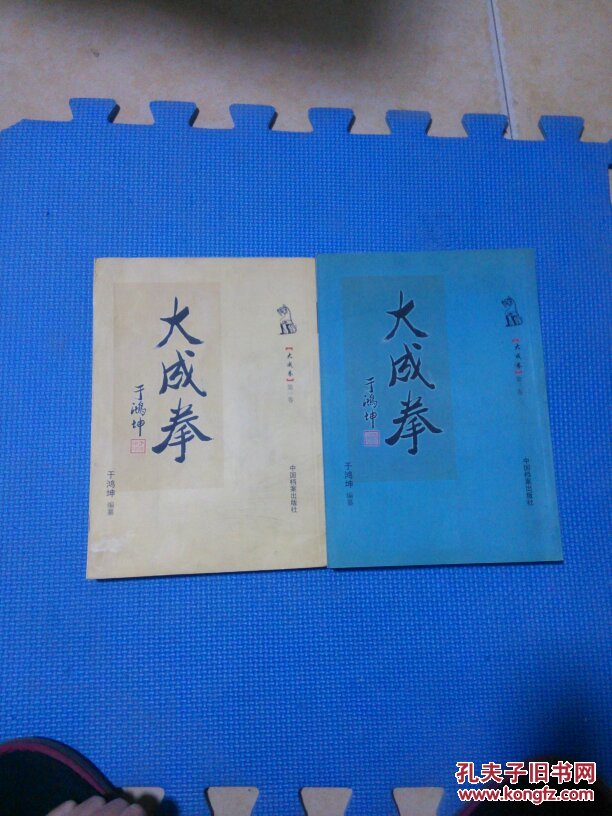 大成拳
于鸿坤
【大成拳】第一卷
于鸿坤 编纂
中国档案出版社
大成拳
于鸿坤
【大成拳】第
卷
于鸿坤 编纂
中国档案出版社
孔夫子旧书网
www.kongfz.com